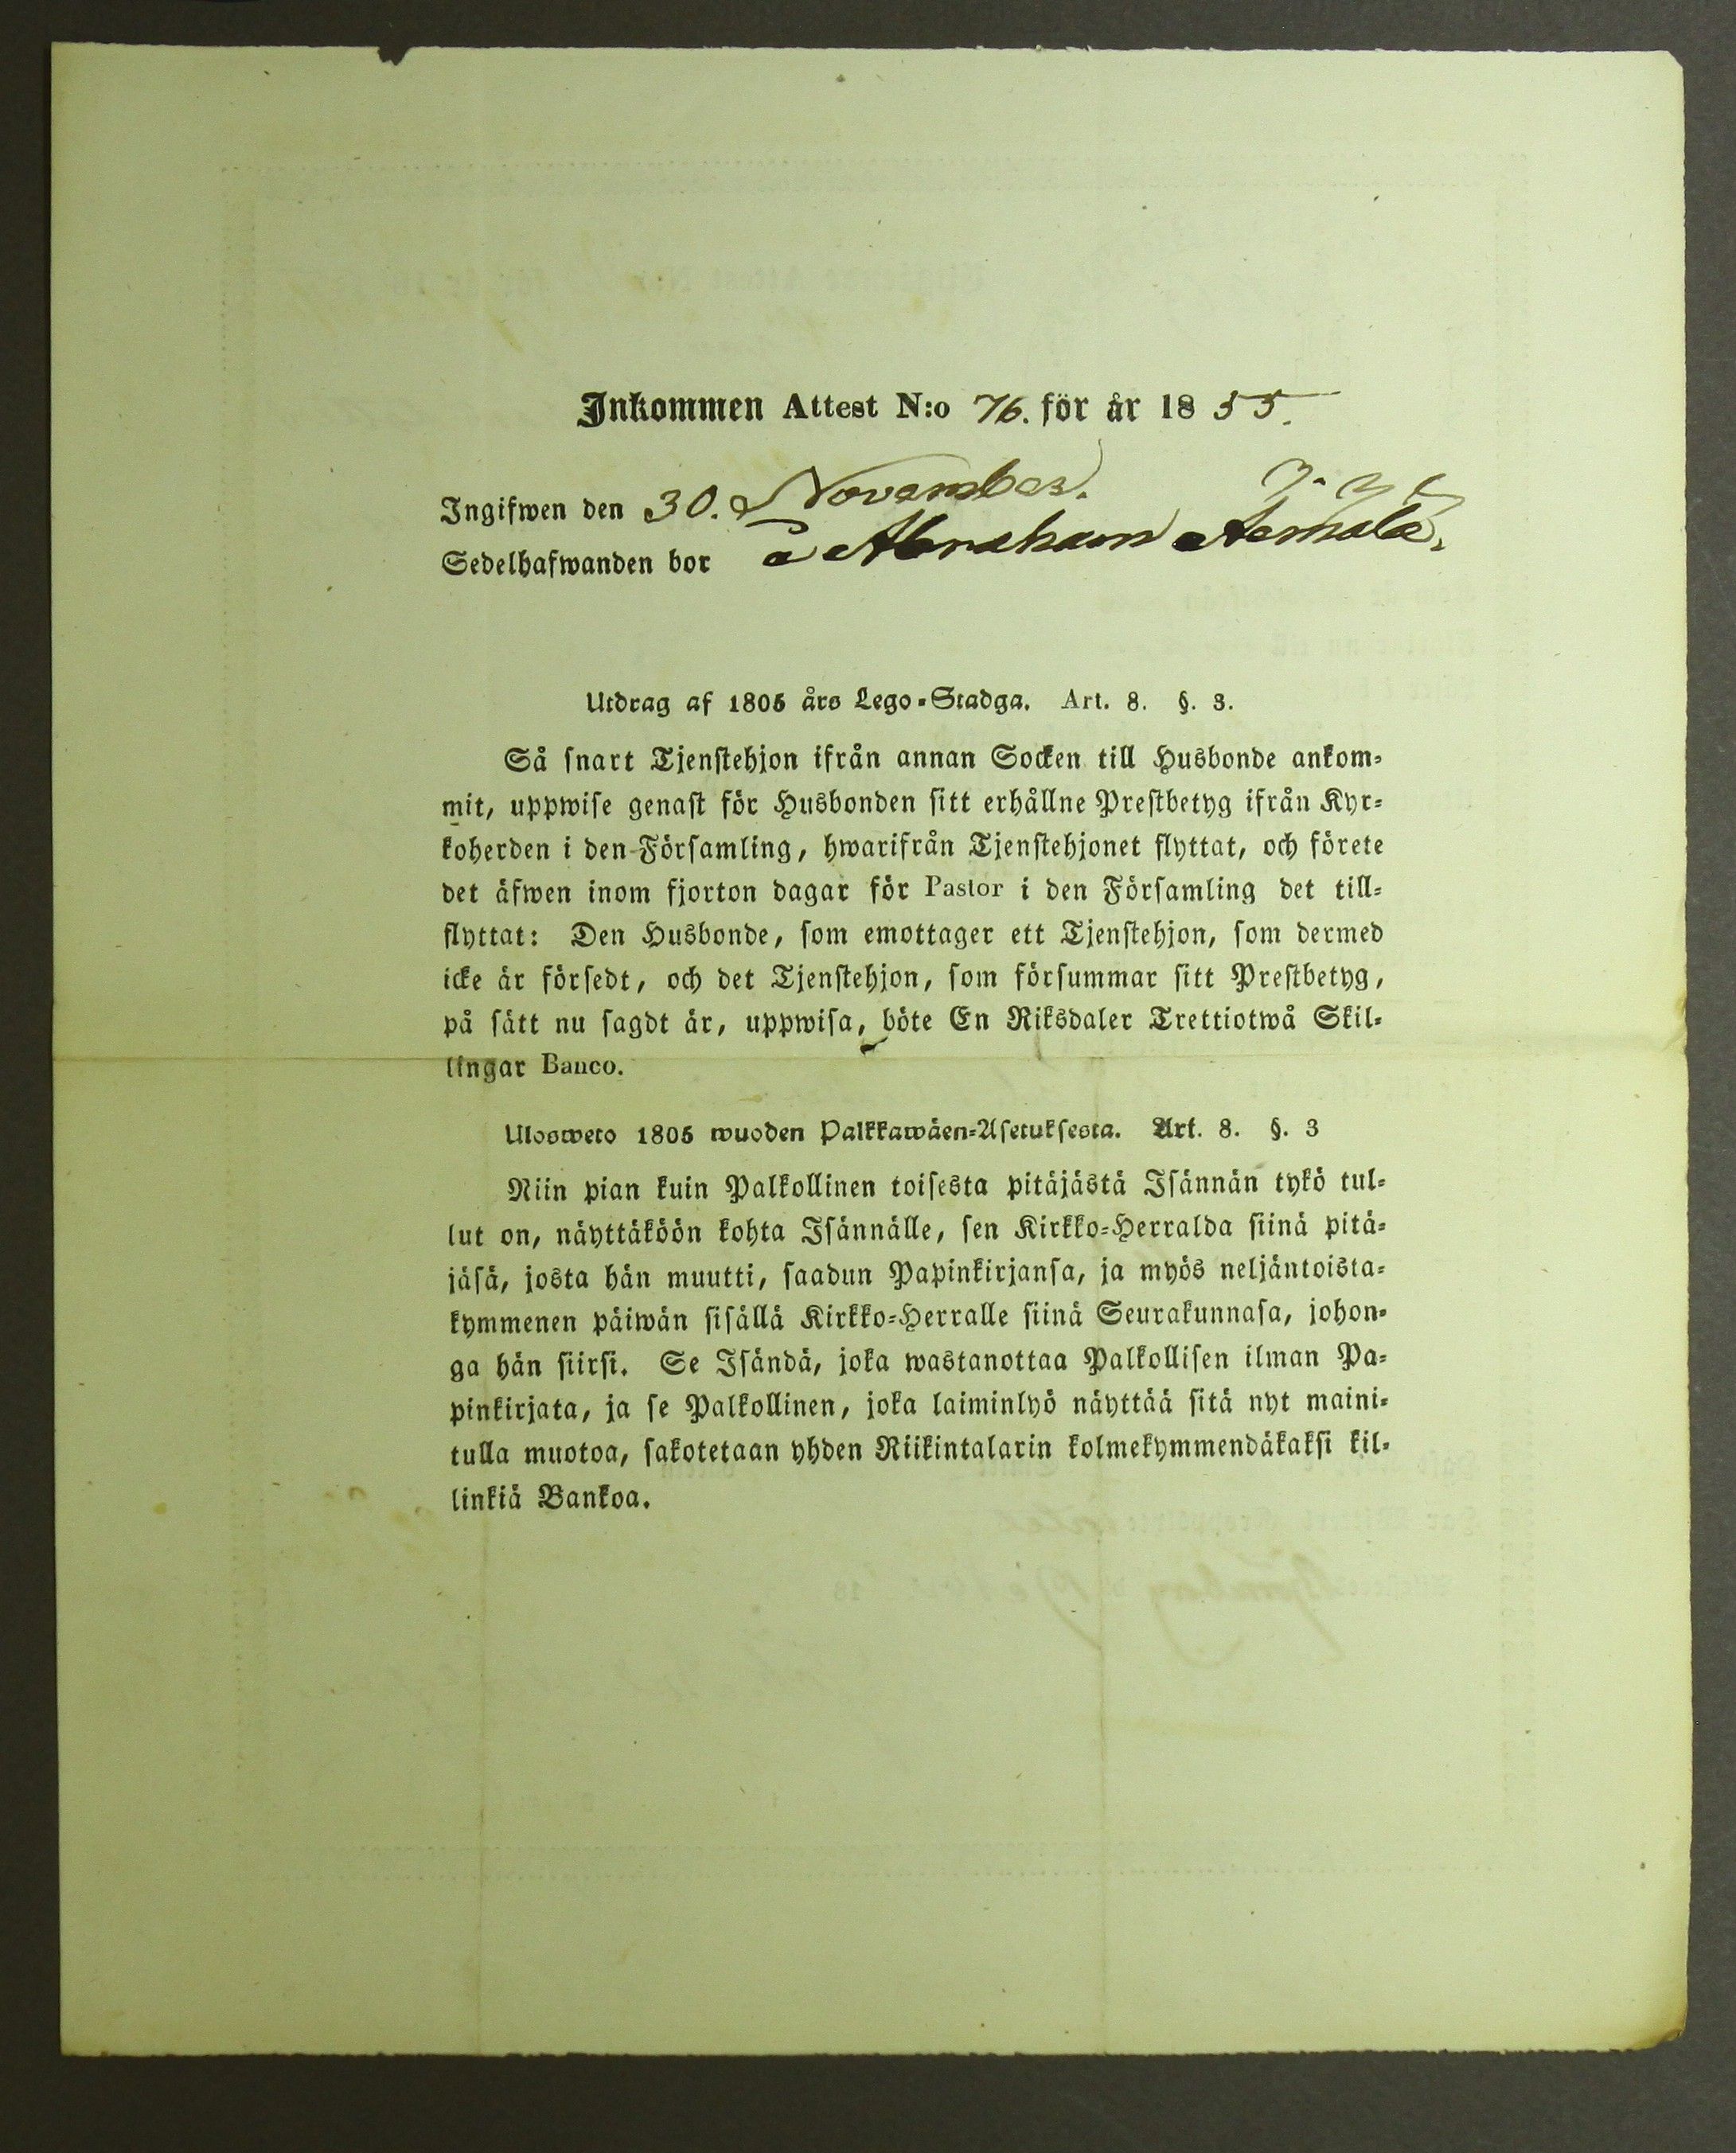 Inkommen Attest N:o 76. för år 1855.
Ingifwen den 30. November.
Sedelhafwanden bor å Abraham
Utdrag af 1805 års Lego-Stadga. Art. 8. §. 3.
Så snart Tjenstehjon ifrån annan Socken till Husbonde ankom-
mit, uppwise genast för Husbonden sitt erhållne Prestbetyg ifrån Kyr-
koherden i den Församling, hwarifrån Tjenstehjonet flyttat, och förete
det äfwen inom fjorton dagar för Pastor i den Församling det till-
flyttat: Den Husbonde, som emottager ett Tjenstehjon, som dermed
icke är försedt, och det Tjenstehjon, som försummar sitt Prestbetyg,
på sätt nu sagdt är, uppwisa, böte En Riksdaler Trettiotwå Skil-
lingar Banco.
Ulosweto 1805 wuoden Palkkawäen-Asetuksesta. Art. 8. §. 3
Niin pian kuin Palkollinen toisesta pitäjästä Isännän tykö tul-
lut on, näyttäköön kohta Isännälle, sen Kirkko-Herralda siinä pitä-
jäsä, josta hän muutti, saadun Papinkirjansa, ja myös neljäntoista-
kymmenen päiwän sisällä Kirkko-Herralle siinä Seurakunnasa, johon-
ga hän siirsi. Se Isändä, joka wastanottaa Palkollisen ilman Pa-
pinkirjata, ja se Palkollinen, joka laiminlyö näyttää sitä nyt maini-
tulla muotoa, sakotetaan yhden Riikintalarin kolmekymmendäkaksi kil-
linkiä Bankoa.